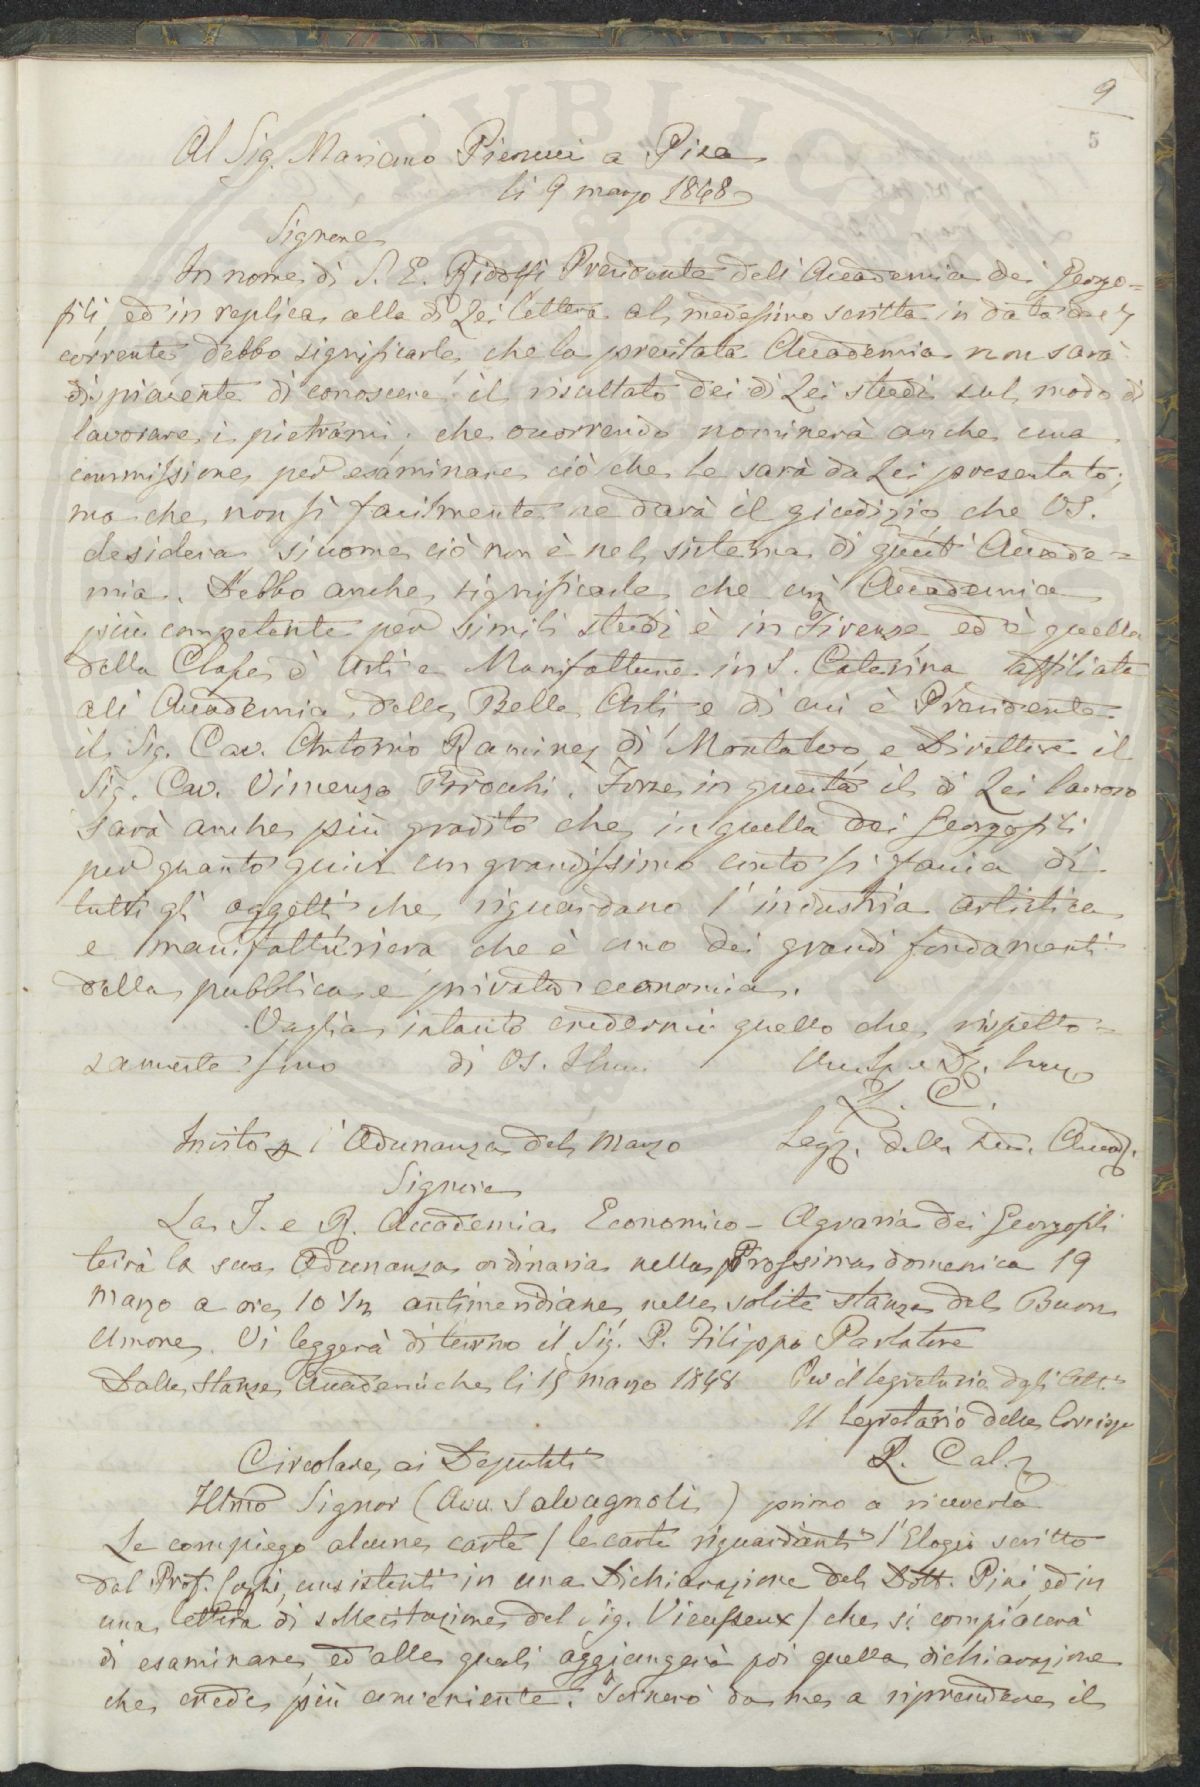 9
5
Al Sig. Mariano Pierucci a Pisa
li 9 marzo 1848
Signore
In nome di S. E. Ridolfi Presidente dell'Accademia dei Georgo=
fili, ed in replica alla di Lei lettera al medesimo scritta in data de' 7
corrente debbo significarle, che la prelitata Accademia non sarà
dispiacente di conoscere il risultato dei di Lei studi sul modo di
lavorare i pietrami; che occorrendo nominerà anche una
commissione per esaminare ciò che le sarà da Lei presentato;
ma che non sì facilmente ne darà il giudizio che VS.
desidera siccome ciò non è nel sistema di quest'Accade=
mia. Debbo anche significarle che un'Accademia
più competente per simili studi è in Firenze ed è quella
della Classe d'Arti e Manifatture in S. Caterina affiliata
all'Accademia delle Belle Arti e di cui è Presidente
il Sig. Cav. Antonio Ramirez di Montalvo e Direttore il
Sig. Cav. Vincenzo Brocchi. Forse in questa il di Lei lavoro
sarà anche più gradito che in quella dei Georgofili
per quanto quivi un grandissimo conto si faccia di
tutti gli oggetti che riguardano l'industria artistica
e manifatturiera che è uno dei grandi fondamenti
della pubblica e privata economia.
Voglia intanto credermi quello che rispetto=
samente sono di VS. Illma
L. C.
Segr. della Acad.
Invito p l'Adunanza del Marzo
Signore
La I. e R. Accademia Economico-Agraria dei Georgofili
terrà la sua Adunanza ordinaria nella Prossima domenica 19
marzo a ore 10 1/2 antimeridiane nelle solite stanze del Buon
Umore. Vi leggerà di turno il Sig. P. Filippo Parlatore
Dalle Stanze Accademiche li 15 marzo 1848 Per il Segretario degli Atti
Il Segretario delle Corrispe
L. Cal.
Circolare ai Deputati
Illmo Signor (Avv. Salvagnoli) primo a riceverla
Le compiego alcune carte / le carte riguardanti l'Elogio scritto
dal Prof. consistenti in una Dichiarazione del Dott. Pini, ed in
una lettera di sollecitazione del Sig. Vieusseux / che si compiacerà
di esaminare ed alle quali aggiungerà poi quella dichiarazione
che crede più conveniente. Tornerò da me a riprendere il